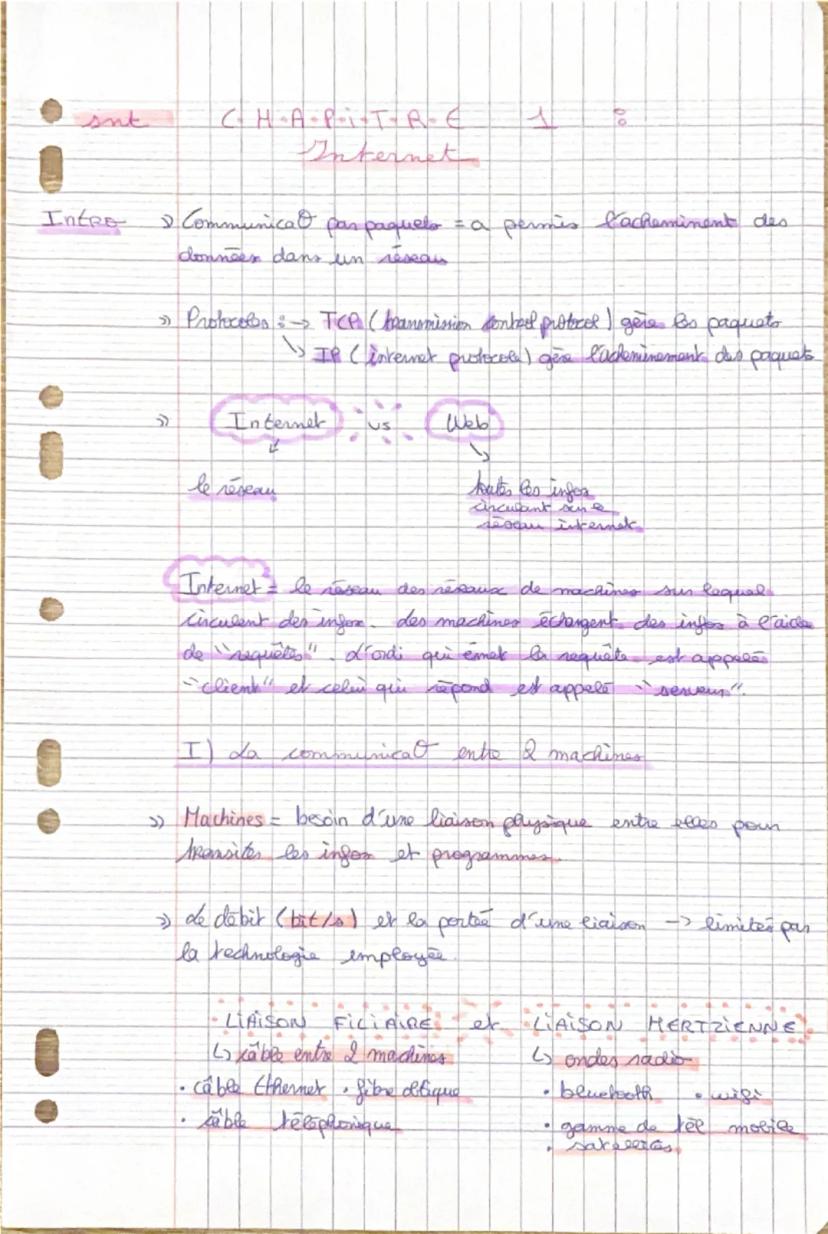 snt C.H.A.P.i.T.R.E 1 :
Internet
Intro » Communicat° par paquets = a permis l'acheminent des
données dans un réseau
» Protocoles : → TCP (transmission control protocol) gère les paquets
↳ IP (internet protocole) gère l'acheminement des paquets
» Internet vs Web
le réseau toutes les infos
circulant sur le
réseau internet.
Internet = le réseau des réseaux de machines sur lequel
circulent des infos. des machines échangent des infos à l'aide
de "requêtes". L'ordi qui émet la requête est appelé
"client" et celui qui répond est appelé "serveur".
I) La communicat° entre 2 machines
» Machines = besoin d'une liaison physique entre elles pour
transiter les infos et programmes.
» Le débit (bit/s) et la portée d'une liaison → limités par
la technologie employée.
LIAISON FILIAIRE et LIAISON HERTZIENNE
↳ câble entre 2 machines ↳ ondes radio
• câble Ethernet • fibre otique • bluetooth • wifi
• câble téléphonique • gamme de tél mobile
• satellites.